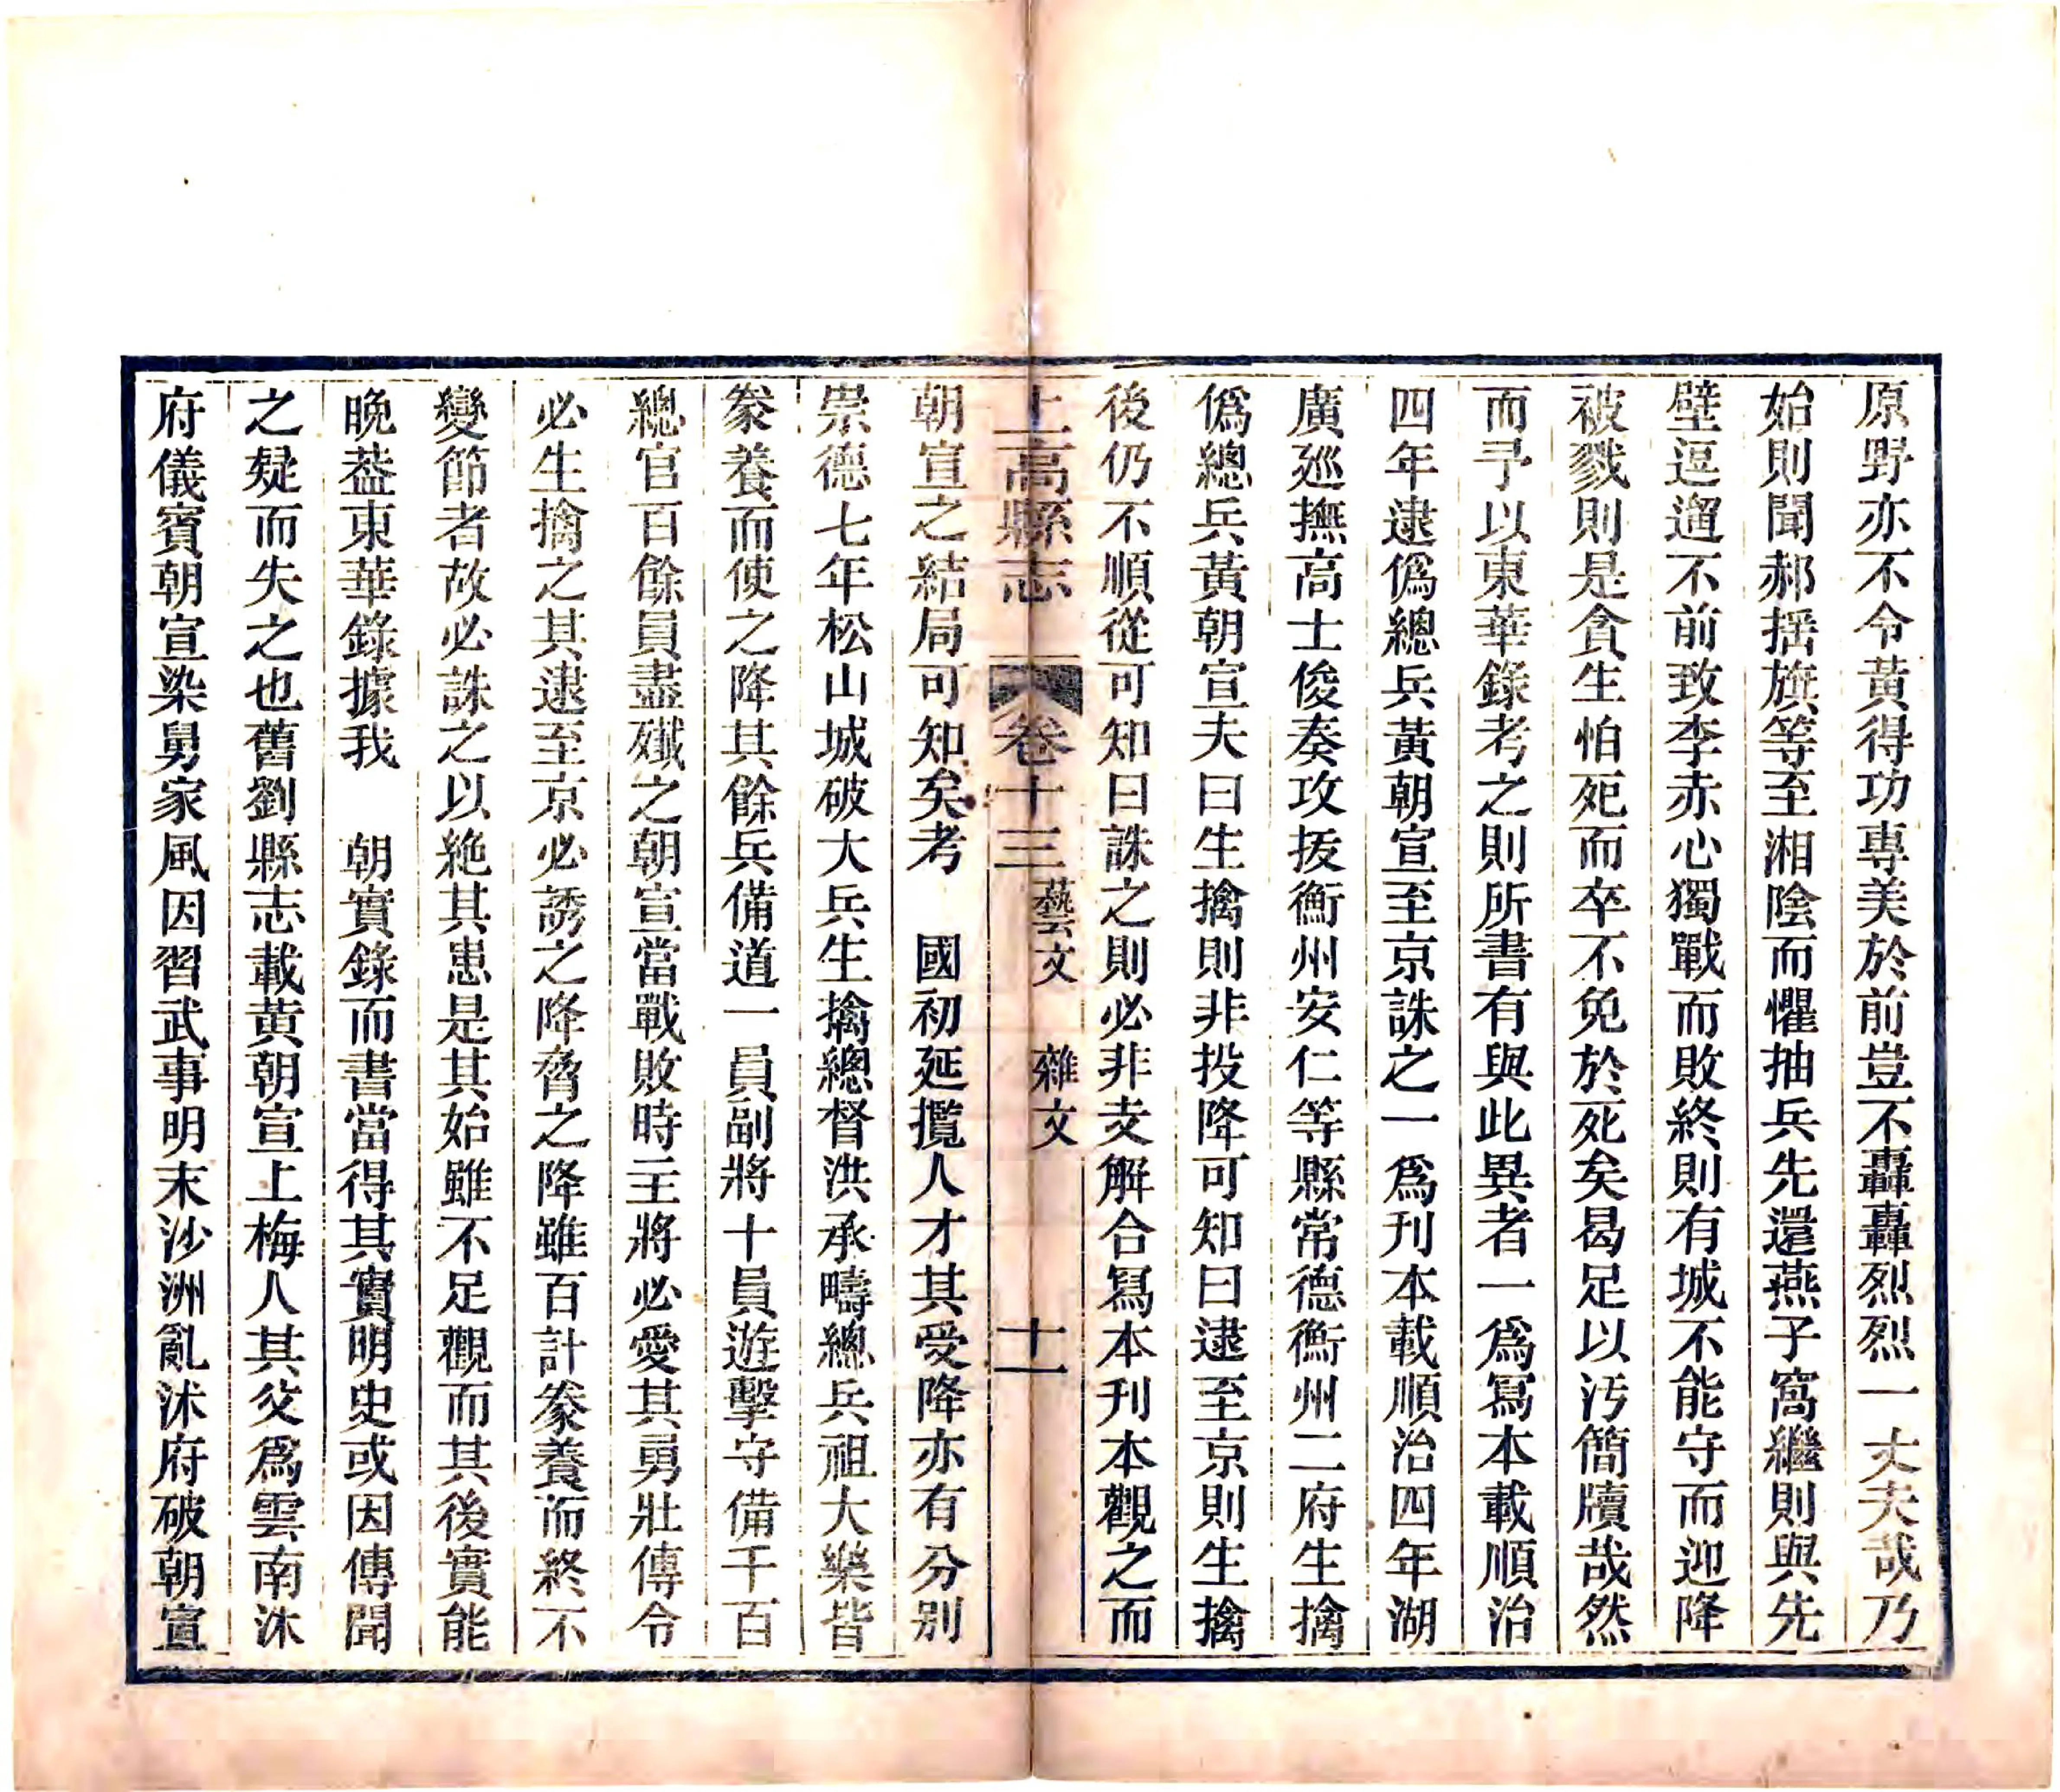 原野亦不令黃得功專美於前豈不轟轟烈烈一大夫哉乃
始則聞郝搖旗等至湘陰而懼抽兵先還燕子窩繼則與先
壁逗遛不前致李赤心獨戰而敗終則有城不能守而迎降
被戮則是貪生怕死而卒不免於死矣曷足以汚簡牘哉然
而予以東華錄考之則所書有與此異者一爲寫本載順治
四年逮僞總兵黃朝宣至京誅之一爲刊本載順治四年湖
廣廵撫高士俊奏攻拔衡州安仁等縣常德衡州二府生擒
僞總兵黃朝宣夫曰生擒則非投降可知曰逮至京則生擒
後仍不順從可知曰誅之則必非支解合寫本刊本觀之而
上高縣志 卷十三 藝文 雜文 十一
朝宣之結局可知矣考 國初延攬人才其受降亦有分別
崇德七年松山城破大兵生擒總督洪承疇總兵祖大樂皆
豢養而使之降其餘兵備道一員副將十員遊擊守備千百
總官百餘員盡殲之朝宣當戰敗時三王將必愛其勇壯傳令
必生擒之其逮至京必誘之降脅之降雖百計豢養而終不
變節者故必誅之以絶其患是其始雖不足觀而其後實能
晚葢東華錄據我 朝實錄而書當得其實明史或因傳聞
之疑而失之也舊劉縣志載黄朝宣上梅人其父爲雲南沐
府儀賓朝宣染舅家風因習武事明末沙洲亂沐府破朝宣